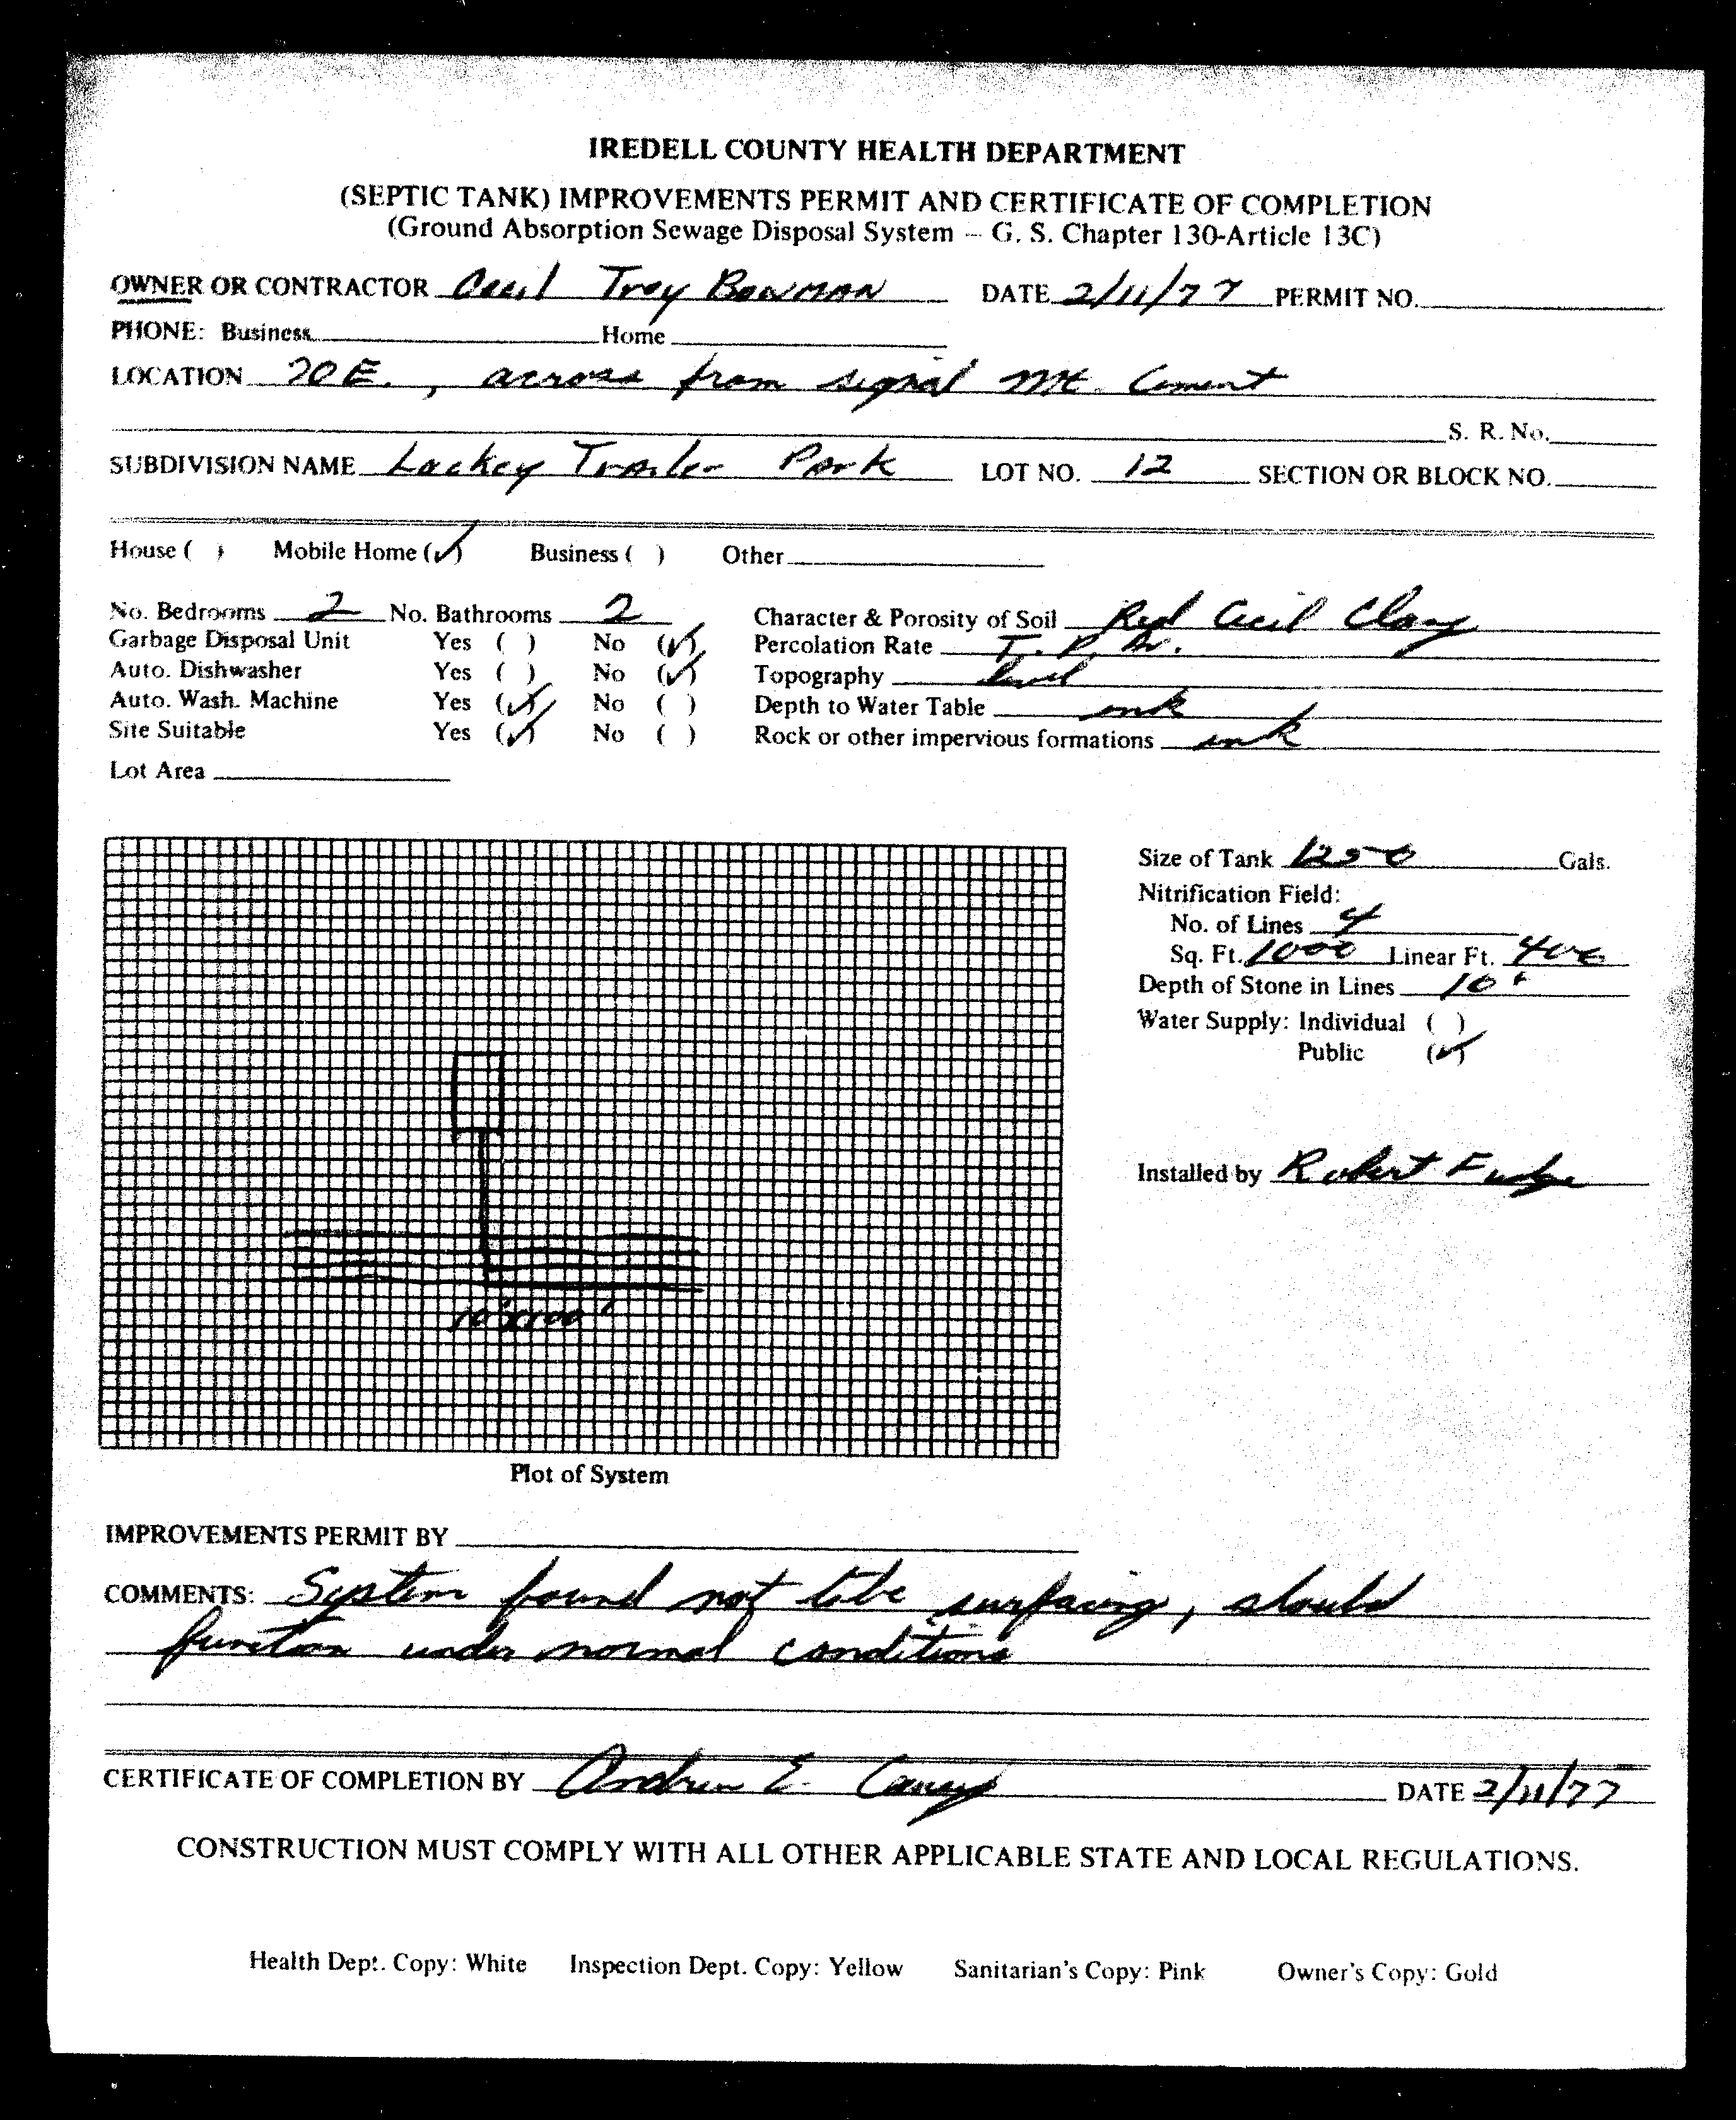 IREDELL COUNTY HEALTH DEPARTMENT
(SEPTIC TANK) IMPROVEMENTS PERMIT AND CERTIFICATE OF COMPLETION
(Ground Absorption Sewage Disposal System – G. S. Chapter 130-Article 13C)
OWNER OR CONTRACTOR Cecil Troy Bowman DATE 2/11/77 PERMIT NO.
PHONE: Business Home
LOCATION 70 E., across from signal Mt. Cement
S. R. No.
SUBDIVISION NAME Lackey Trailer Park LOT NO. 12 SECTION OR BLOCK NO.
House ( ) Mobile Home (✓) Business ( ) Other
No. Bedrooms 2 No. Bathrooms 2 Character & Porosity of Soil Red Cecil Clay
Garbage Disposal Unit Yes ( ) No (✓) Percolation Rate
Auto. Dishwasher Yes ( ) No (✓) Topography level
Auto. Wash. Machine Yes (✓) No ( ) Depth to Water Table unk
Site Suitable Yes (✓) No ( ) Rock or other impervious formations unk
Lot Area
Size of Tank 1250 Gals.
Nitrification Field:
No. of Lines 4
Sq. Ft. 1000 Linear Ft. 400
Depth of Stone in Lines 10"
Water Supply: Individual ( )
Public (✓)
Installed by Robert Fudge
Plot of System
IMPROVEMENTS PERMIT BY
COMMENTS: System found not to be surfacing, should
function under normal conditions
CERTIFICATE OF COMPLETION BY Andrew E. DATE 2/11/77
CONSTRUCTION MUST COMPLY WITH ALL OTHER APPLICABLE STATE AND LOCAL REGULATIONS.
Health Dept. Copy: White Inspection Dept. Copy: Yellow Sanitarian's Copy: Pink Owner's Copy: Gold